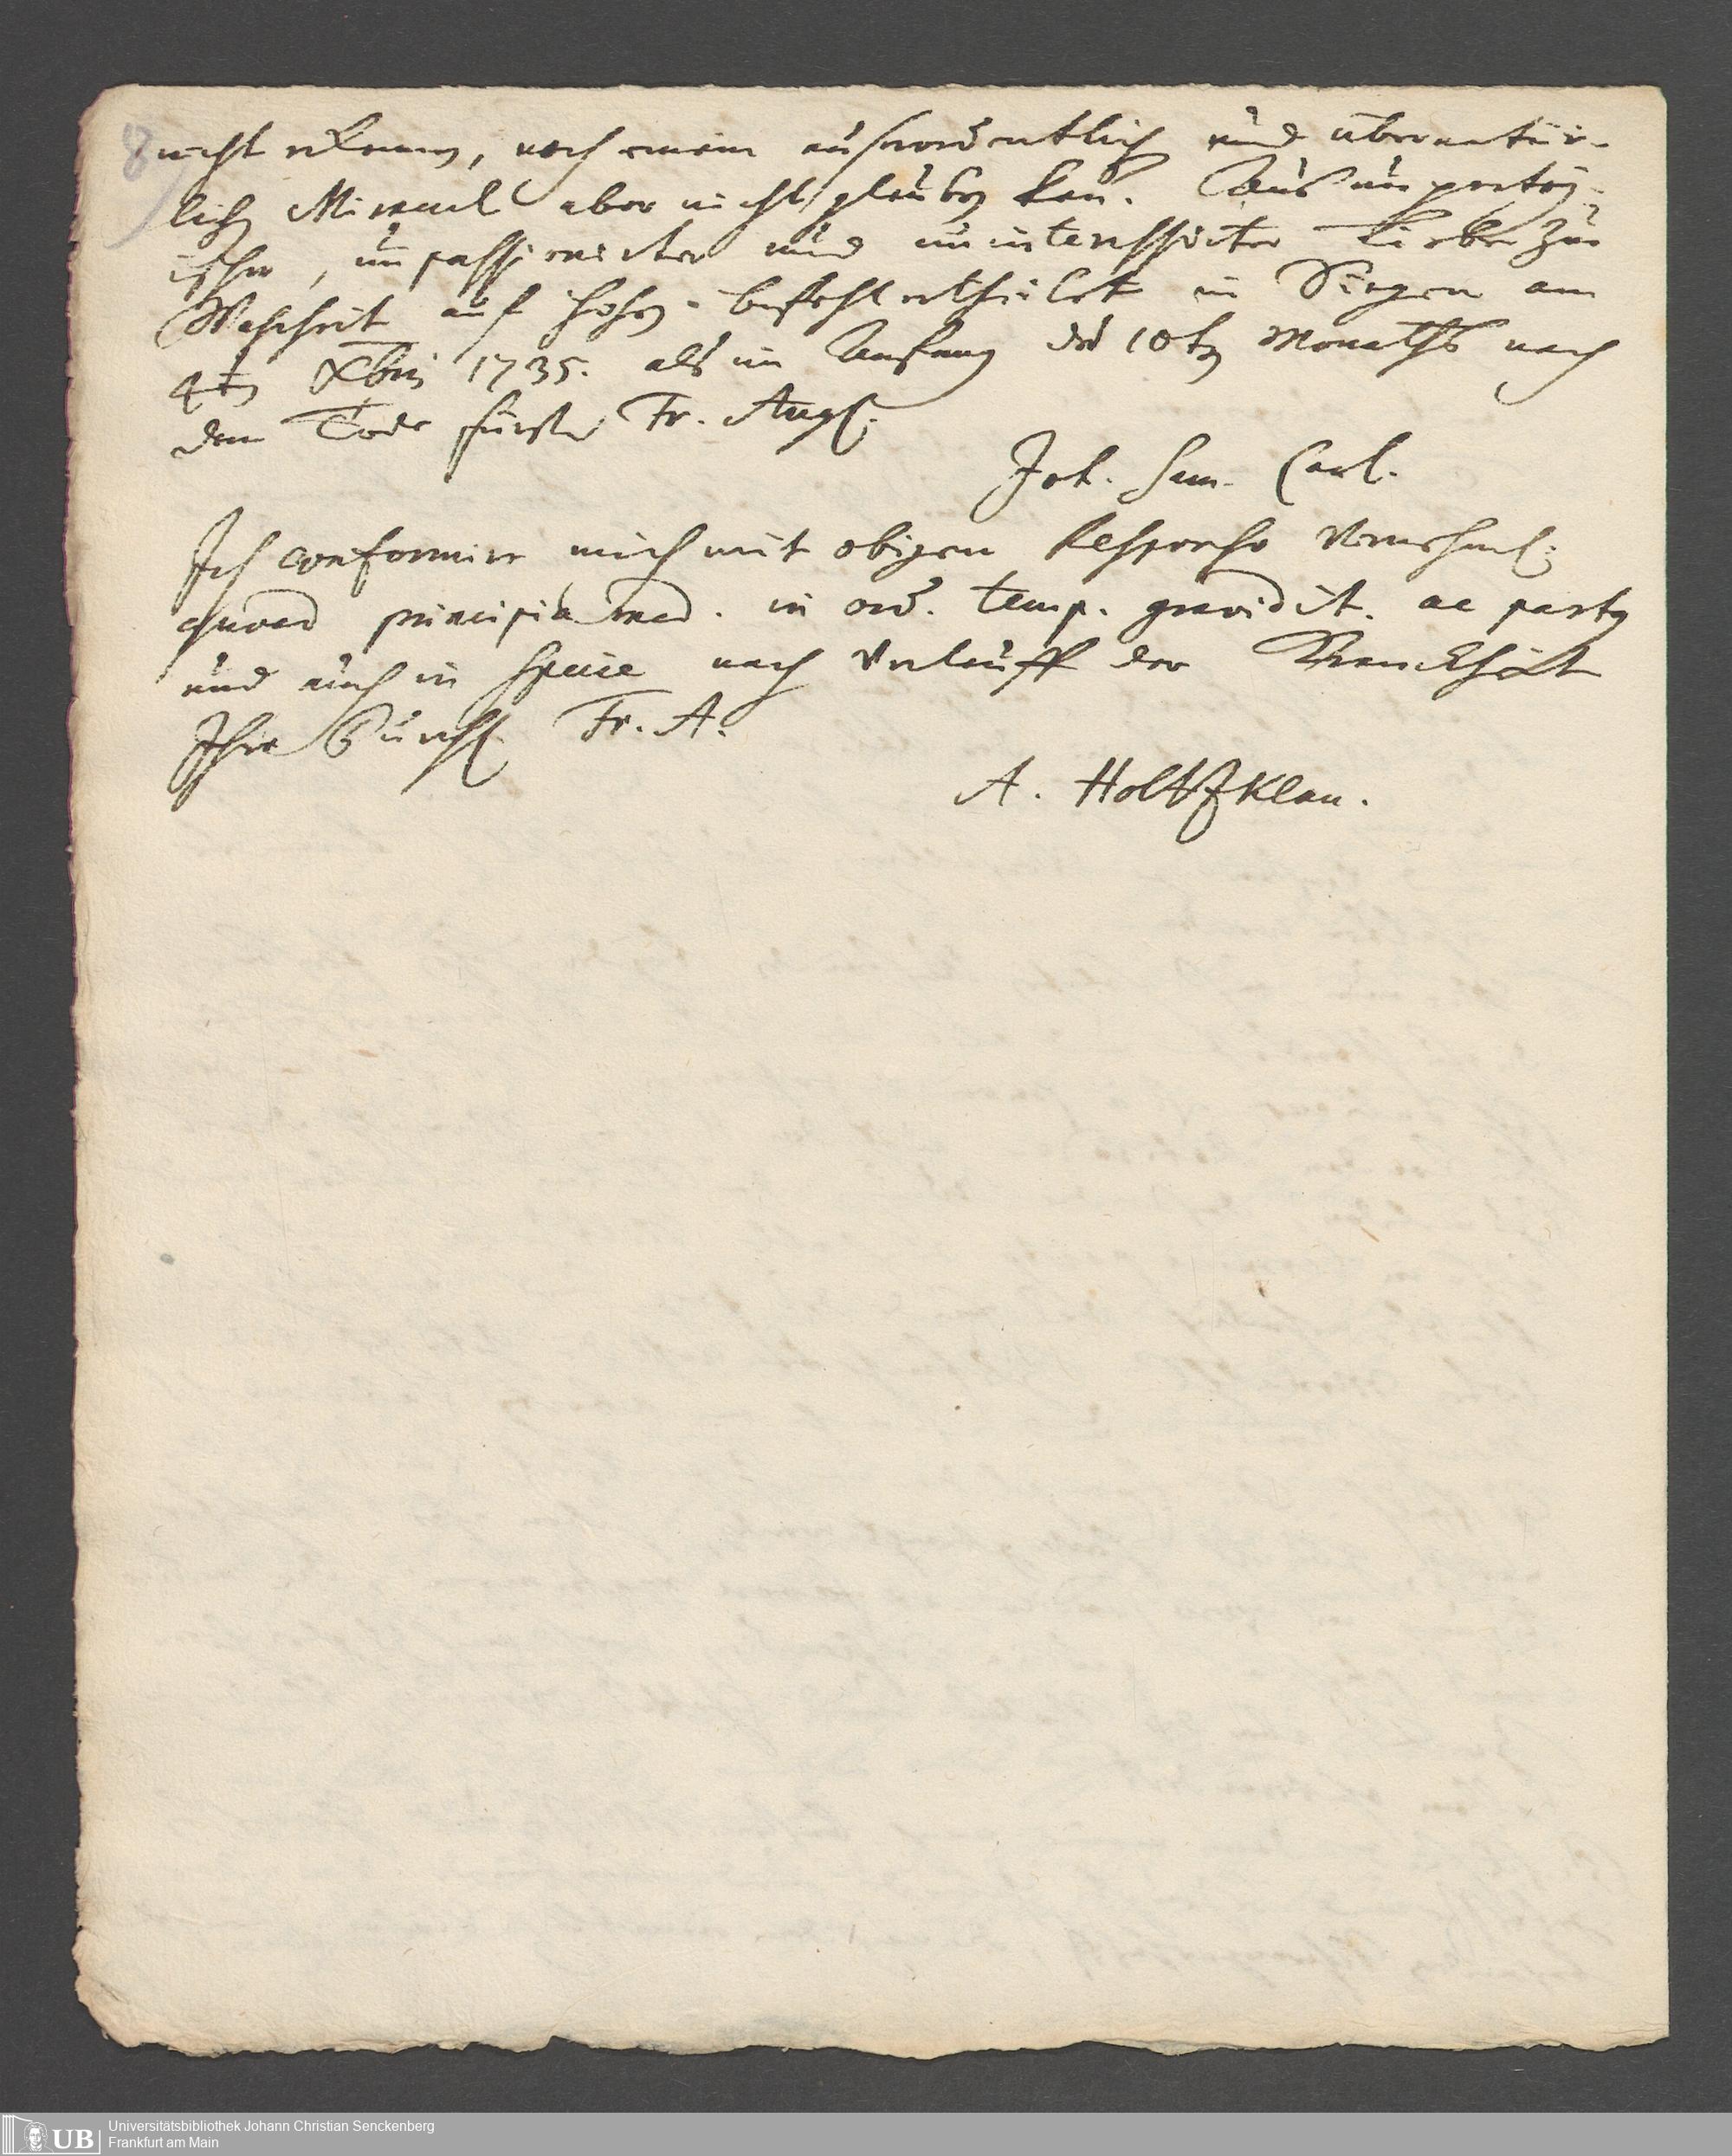 8
nicht erkennen, noch einem ausserordentlich und übernatür-
lichen Miracul aber nicht glauben kan. Aus unparteÿ-
ischer, unpassionirter und uninteressirter Liebe zur
Wahrheit auf hohen befehl ertheilet in Siegen am
4ten Xbris 1735. als im Anfang des 10ten Monaths nach
dem Tode fürsten Fr. Aug.
Joh. Sam. Carl.
Ich conformire mich mit obigem Responso
quoad principia med. in ord. temp. gravidit. ac partus
und auch in specie nach Verlauff der Kranckheit
Ihro Durchl. Fr. A.
A. Holtzklau.
UB Universitätsbibliothek Johann Christian Senckenberg
Frankfurt am Main